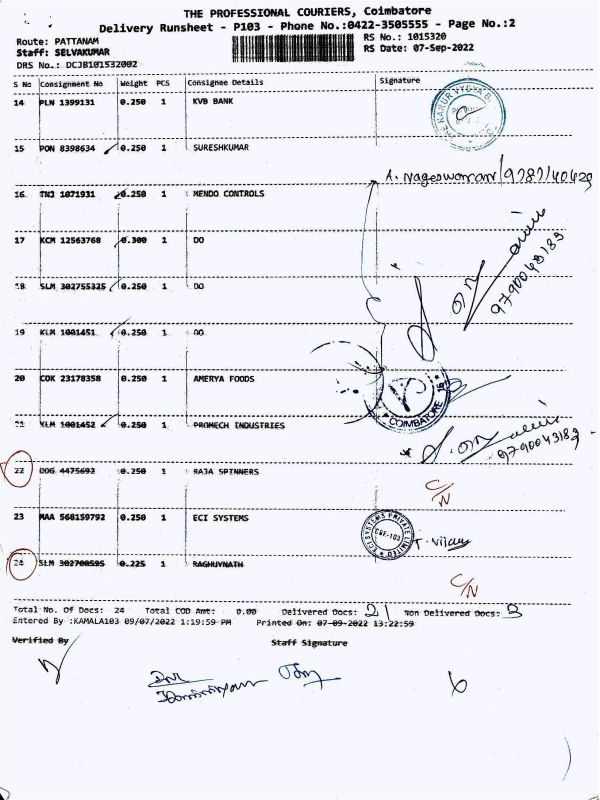 THE PROFESSIONAL COURIERS, Coimbatore
Delivery Runsheet - P103 - Phone No.:0422-3505555 - Page No.:2
Route: PATTANAM RS No.: 1015320
Staff: SELVAKUMAR RS Date: 07-Sep-2022
DRS No.: DCJB101532002
S No Consignment No Weight PCS Consignee Details Signature
14 PLN 1399131 0.250 1 KVB BANK
15 PON 8398634 0.250 1 SURESHKUMAR
A. Nageswaran
16 TNJ 1071931 0.250 1 MENDO CONTROLS
17 KCM 12563768 0.300 1 DO
9790043183
18 SLM 302755325 0.250 1 DO
19 KLM 1001451 0.250 1 DO
20 COK 23178358 0.250 1 AMERYA FOODS
COIMBATORE
21 KLM 1001452 0.250 1 PROMECH INDUSTRIES
9790043183
22 DDG 4475692 0.250 1 RAJA SPINNERS
C/N
23 MAA 568159792 0.250 1 ECI SYSTEMS
ECI SYSTEMS PRIVATE LIMITED
CBE-103
T. Vijay
24 SLM 302700595 0.225 1 RAGHUYNATH
C/N
Total No. Of Docs: 24 Total COD Amt: 0.00 Delivered Docs: 21 Non Delivered Docs: 3
Entered By :KAMALA103 09/07/2022 1:19:59 PM Printed On: 07-09-2022 13:22:59
Verified By Staff Signature